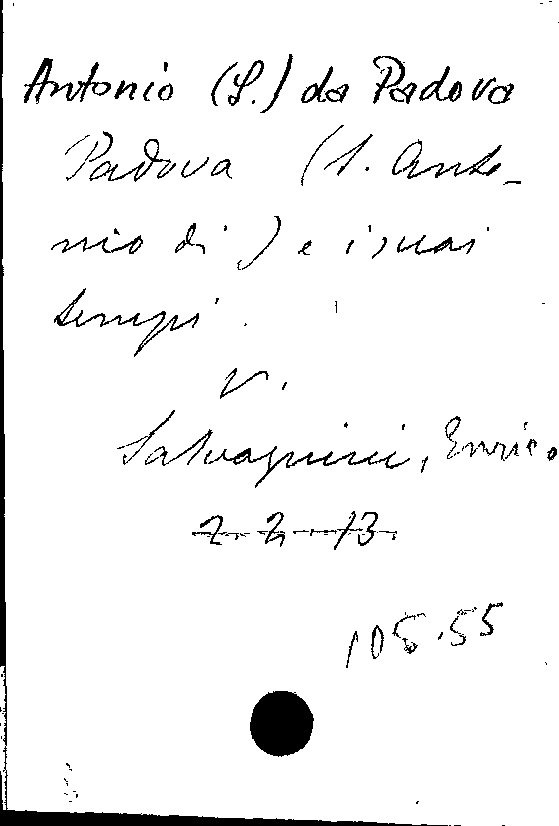 Antonio (S.) da Padova
Padova (S. Anto-
nio di) e i suoi
tempi.
V.
Salvagnini, Enrico
2. 2. 13.
105.55